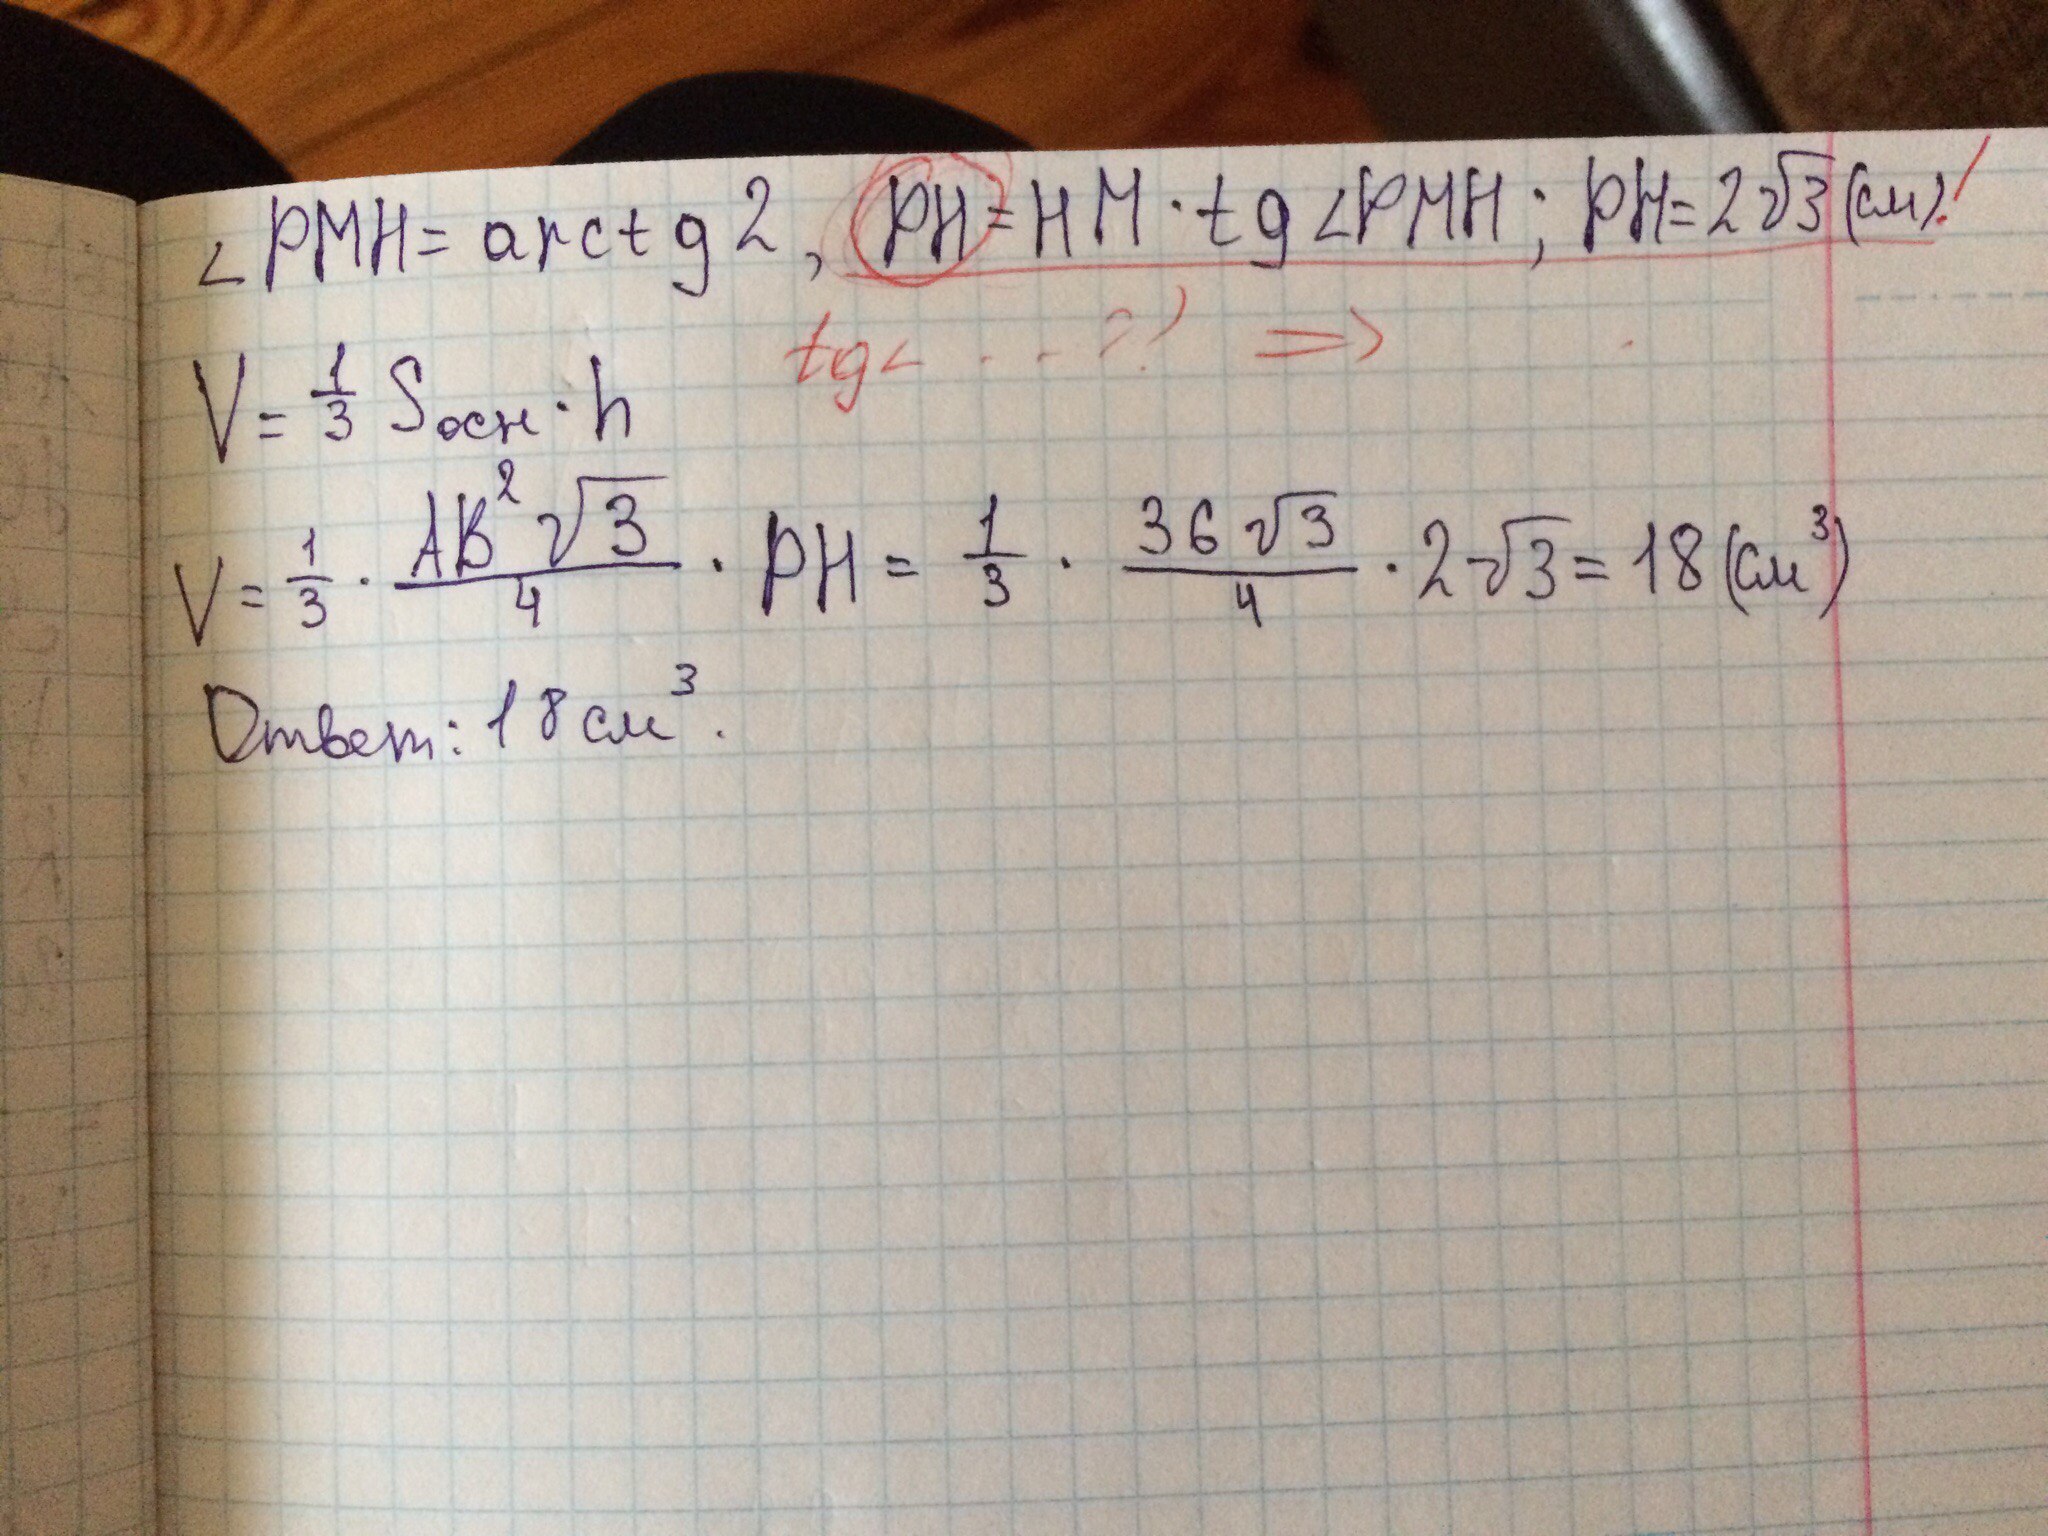 ∠PMH = arctg 2, PH = HM · tg∠PMH; PH = 2√3 (см)!
tg∠ . . . = ?) ⇒
V = 1/3 Sосн · h
V = 1/3 · AB²√3/4 · PH = 1/3 · 36√3/4 · 2√3 = 18 (см³)
Ответ: 18 см³.